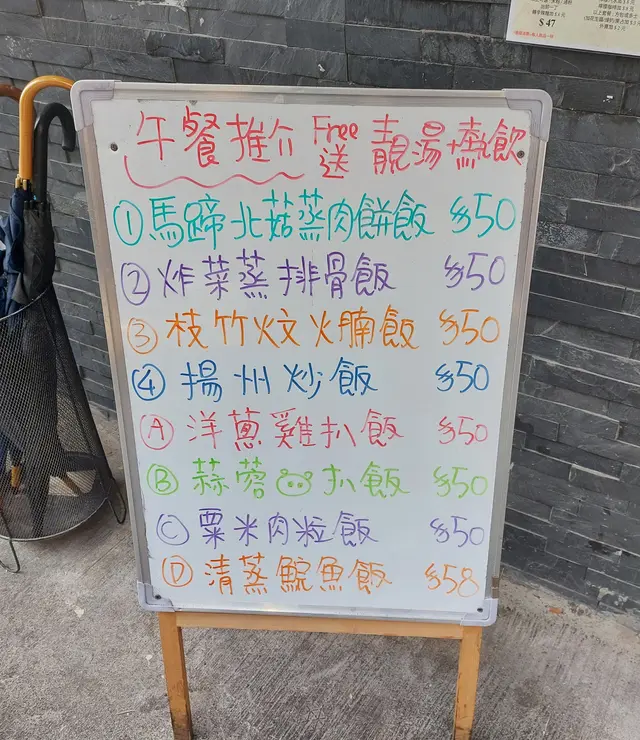 午餐推介 Free 送 靚湯+熱飲
① 馬蹄北菇蒸肉餅飯 $50
② 炸菜蒸排骨飯 $50
③ 枝竹炆火腩飯 $50
④ 揚州炒飯 $50
Ⓐ 洋蔥雞扒飯 $50
Ⓑ 蒜蓉🐷扒飯 $50
Ⓒ 粟米肉粒飯 $50
Ⓓ 清蒸鯇魚飯 $58
$47